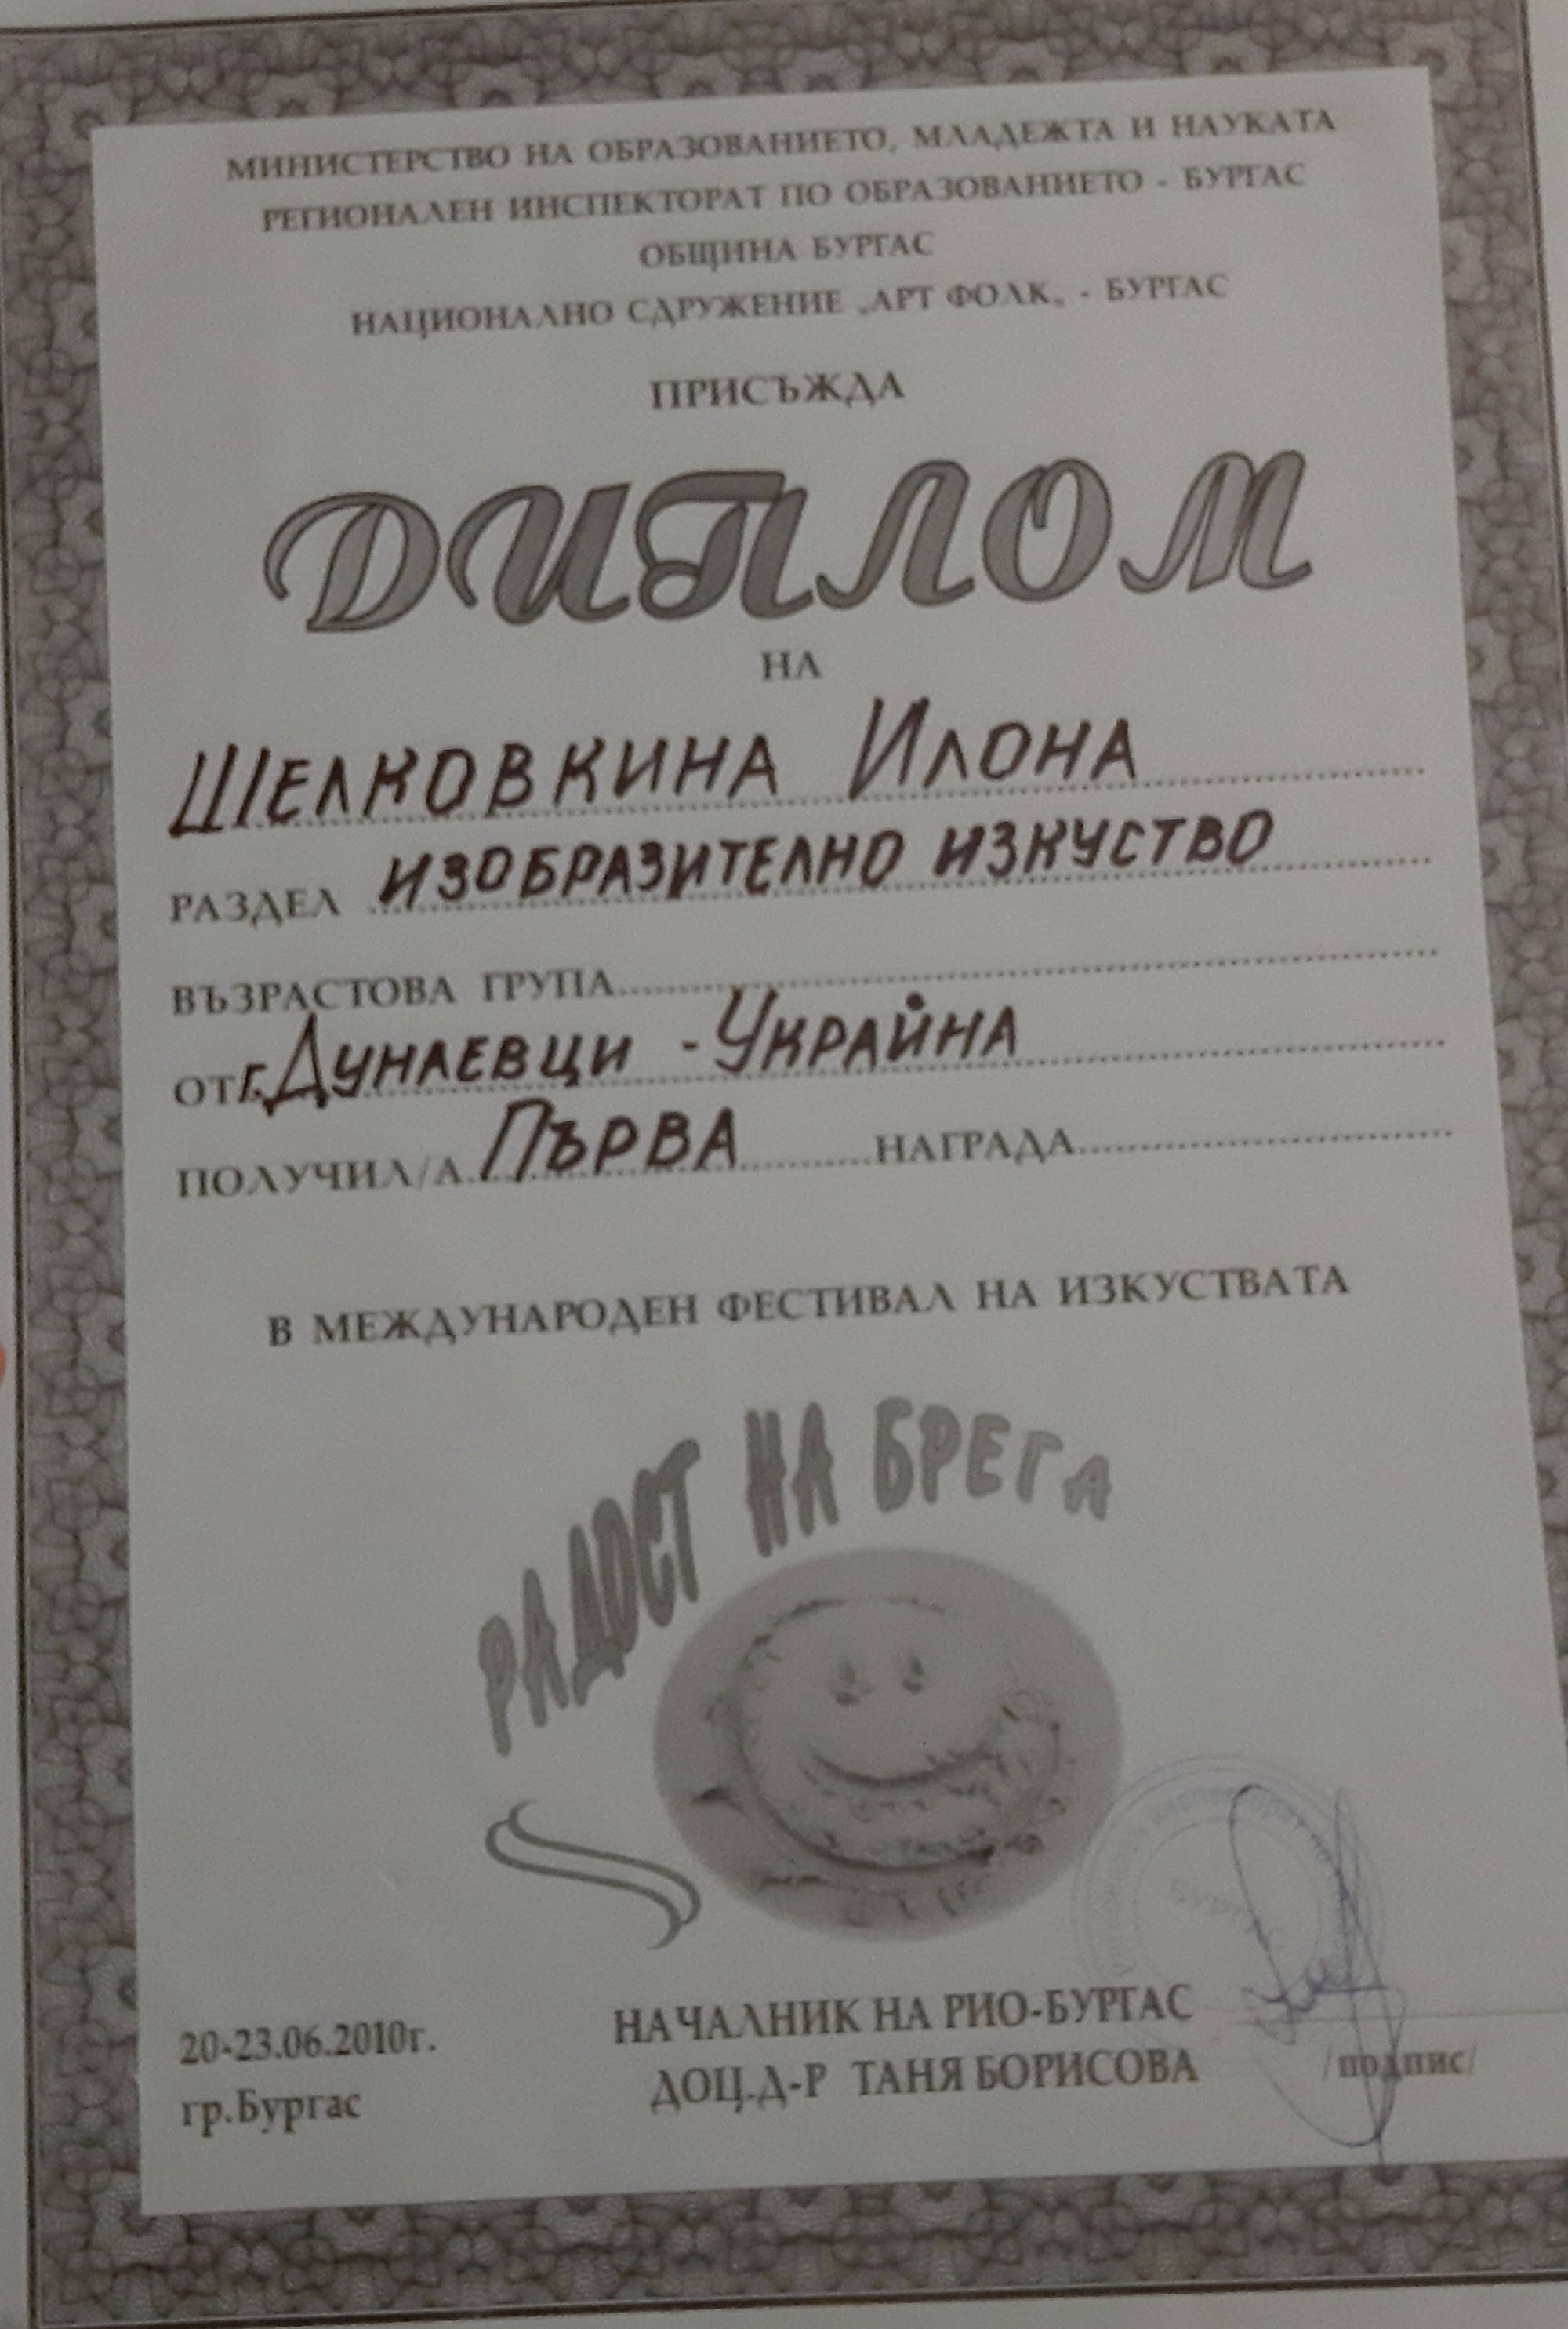 МИНИСТЕРСТВО НА ОБРАЗОВАНИЕТО, МЛАДЕЖТА И НАУКАТА
РЕГИОНАЛЕН ИНСПЕКТОРАТ ПО ОБРАЗОВАНИЕТО - БУРГАС
ОБЩИНА БУРГАС
НАЦИОНАЛНО СДРУЖЕНИЕ „АРТ ФОЛК„ - БУРГАС
ПРИСЪЖДА
ДИПЛОМ
НА
ШЕЛКОВКИНА ИЛОНА
РАЗДЕЛ ИЗОБРАЗИТЕЛНО ИЗКУСТВО
ВЪЗРАСТОВА ГРУПА
ОТ Г. ДУНАЕВЦИ - УКРАЙНА
ПОЛУЧИЛ/А ПЪРВА НАГРАДА
В МЕЖДУНАРОДЕН ФЕСТИВАЛ НА ИЗКУСТВАТА
РАДОСТ НА БРЕГА
20-23.06.2010г. НАЧАЛНИК НА РИО-БУРГАС
гр.Бургас ДОЦ.Д-Р ТАНЯ БОРИСОВА /подпис/